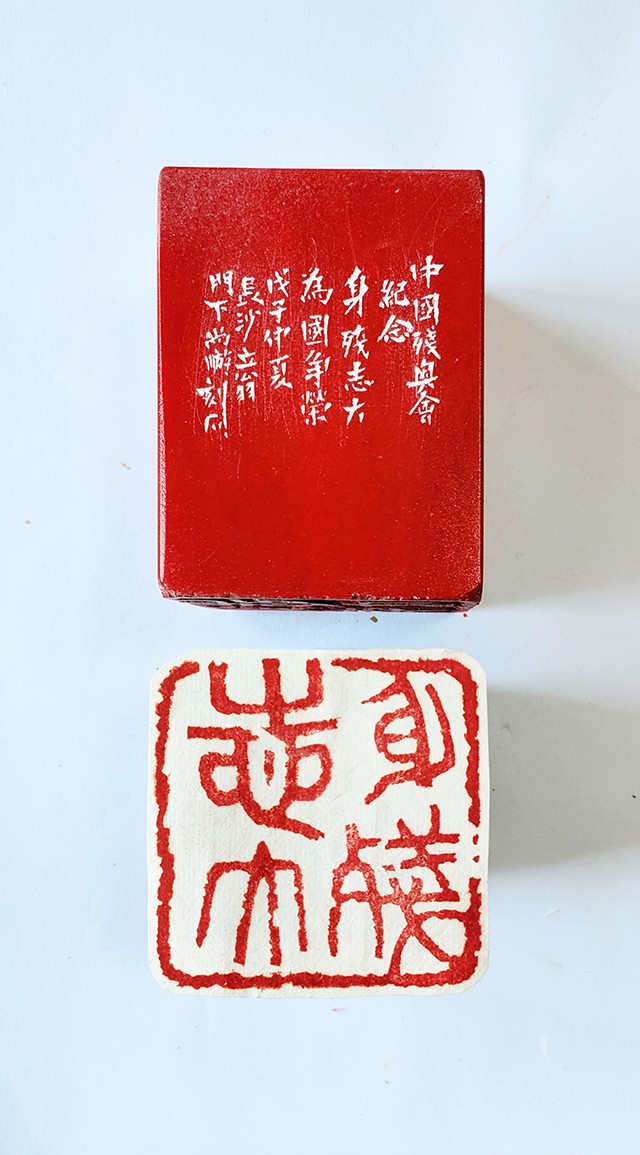 中國殘奧會
紀念
身殘志大
為國爭榮
戊子仲夏
長沙立翁
門下尚
刻石
身殘
志大